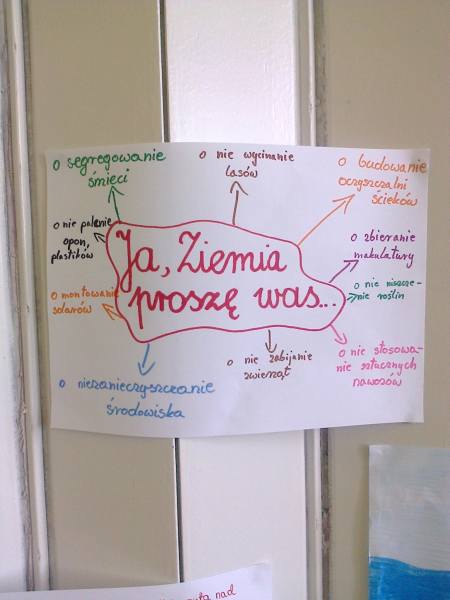 o segregowanie
śmieci
o nie wycinanie
lasów
o budowanie
oczyszczalni
ścieków
o nie palenie
opon,
plastików
Ja, Ziemia
proszę was...
o zbieranie
makulatury
o nie niszcze-
nie roślin
o montowanie
solarów
o nie stosowa-
nie sztucznych
nawozów
o nie zabijanie
zwierząt
o niezanieczyszczanie
środowiska
nad